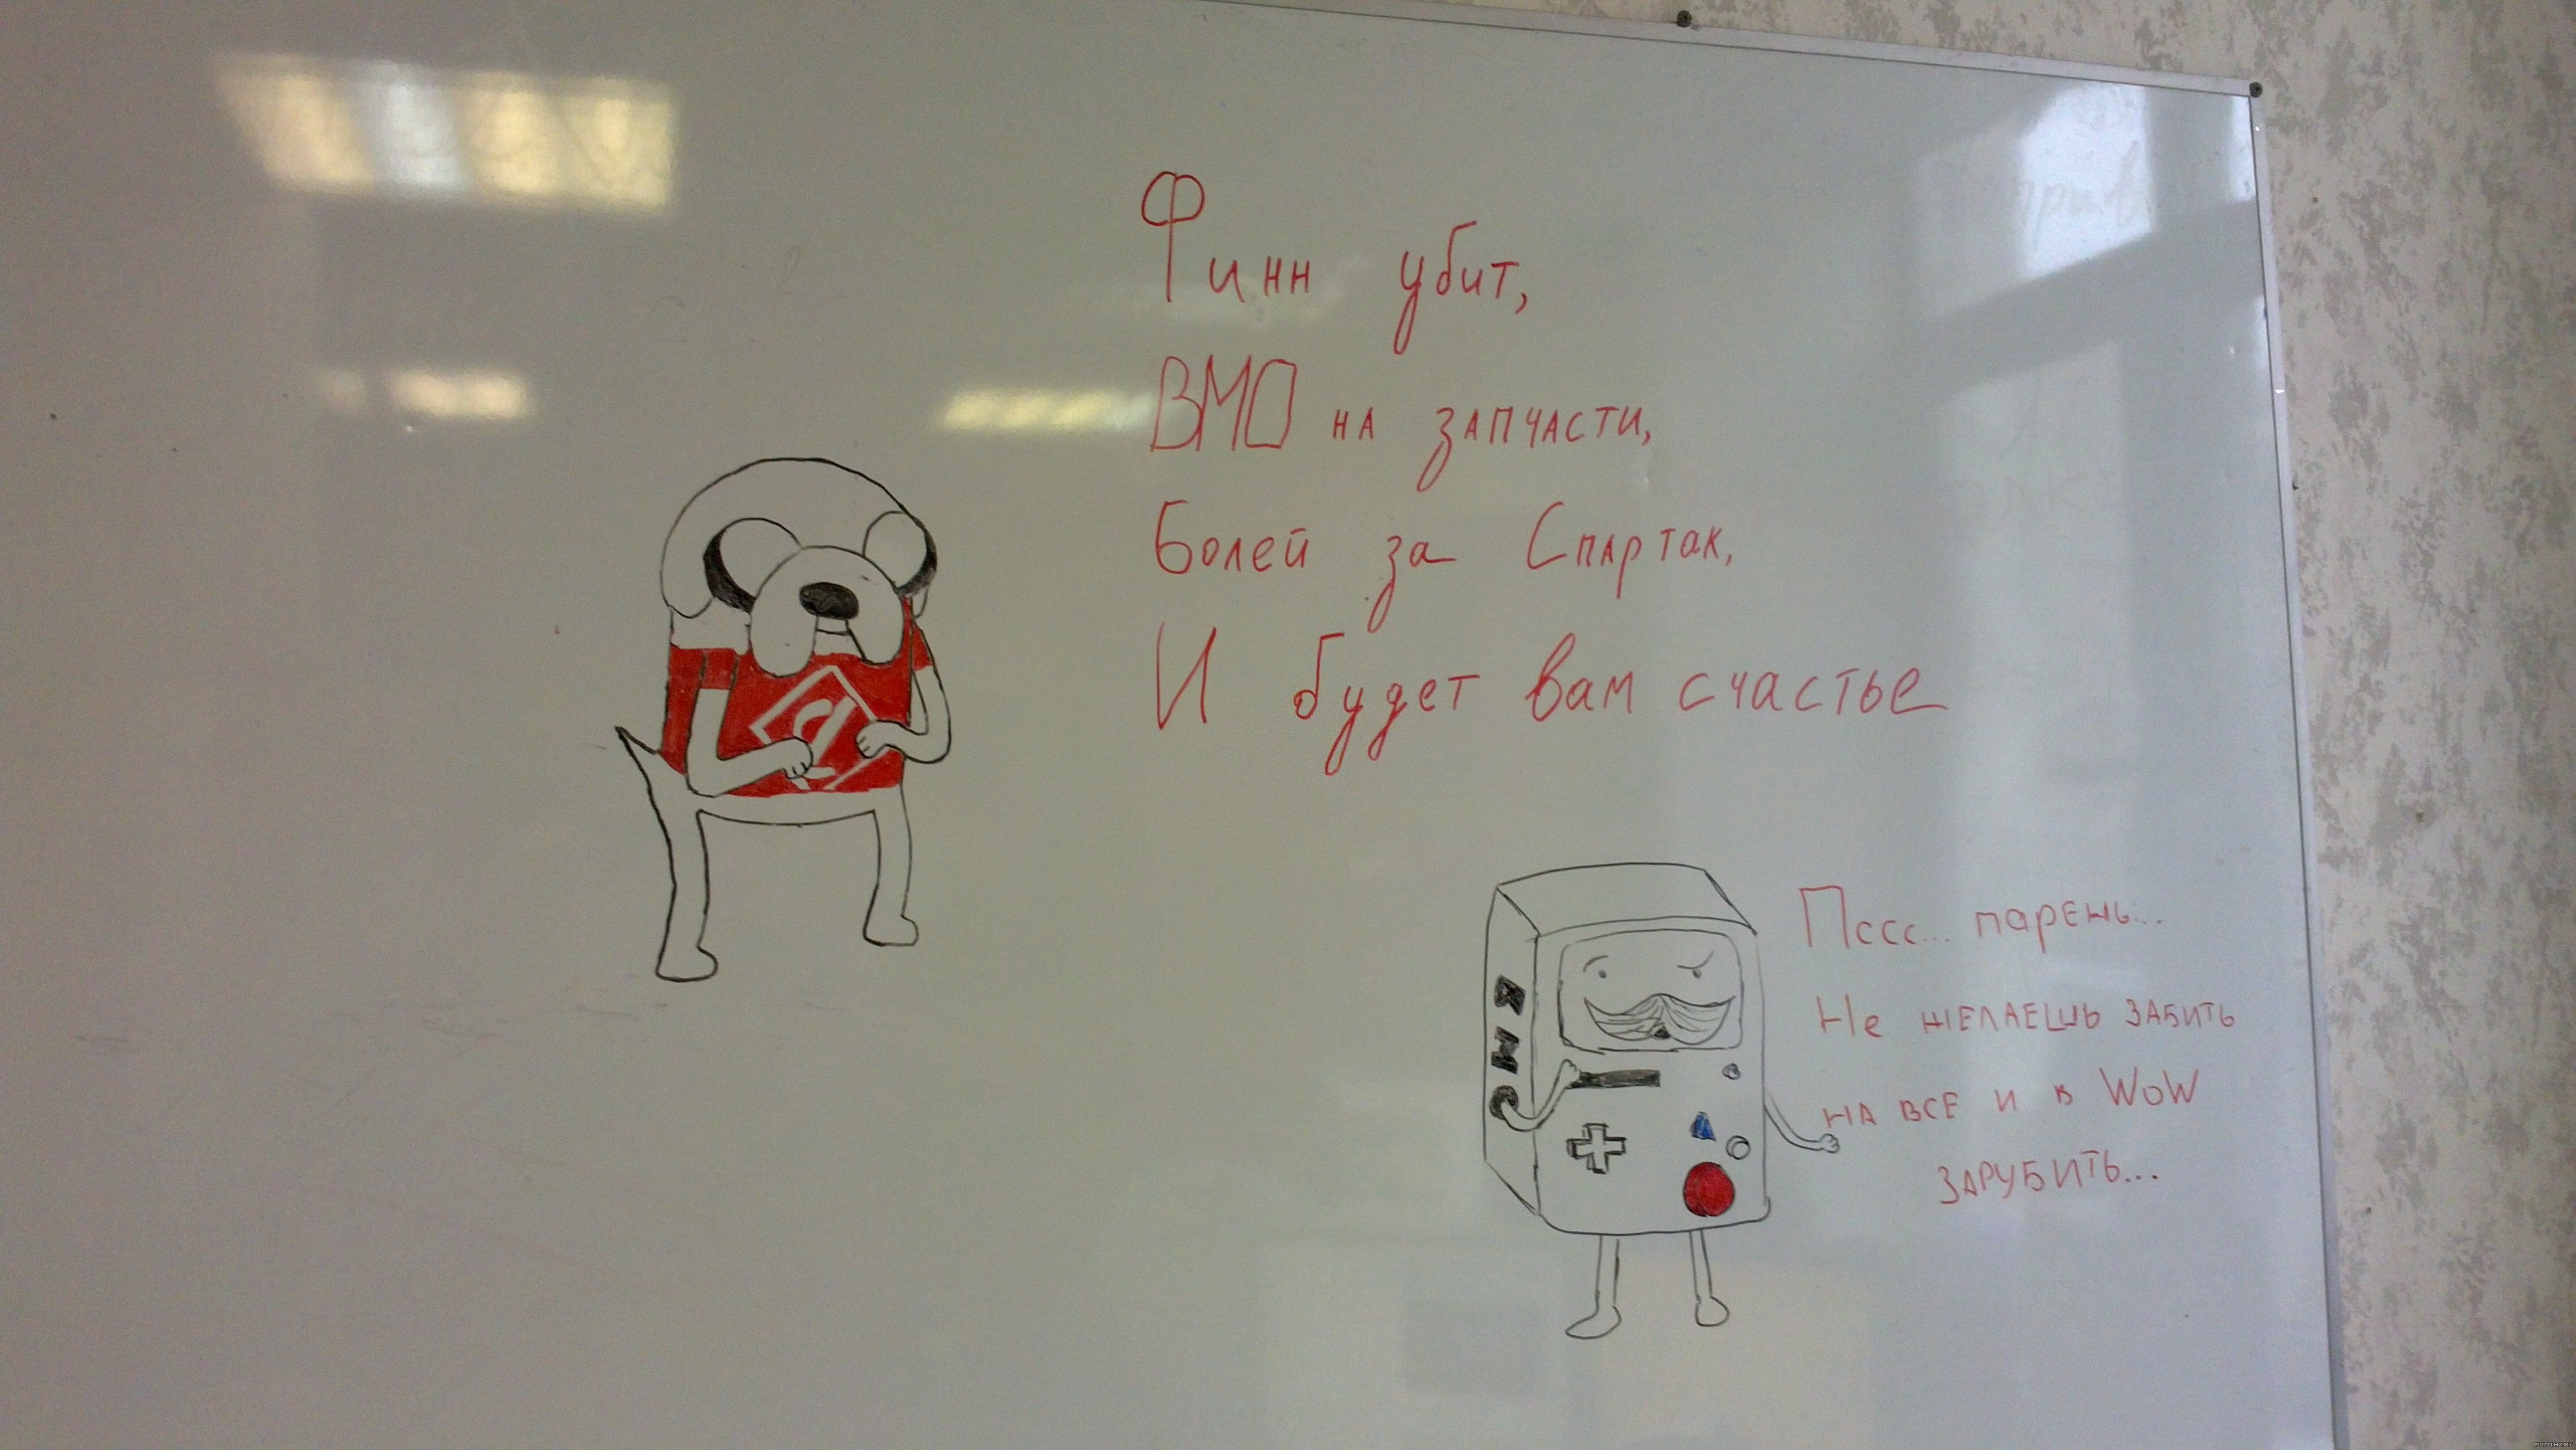 Финн убит,
ВМО на запчасти,
Болей за Спартак,
И будет вам счастье
Пссс... парень...
Не желаешь забить
на все и в WoW
зарубить...
BMO